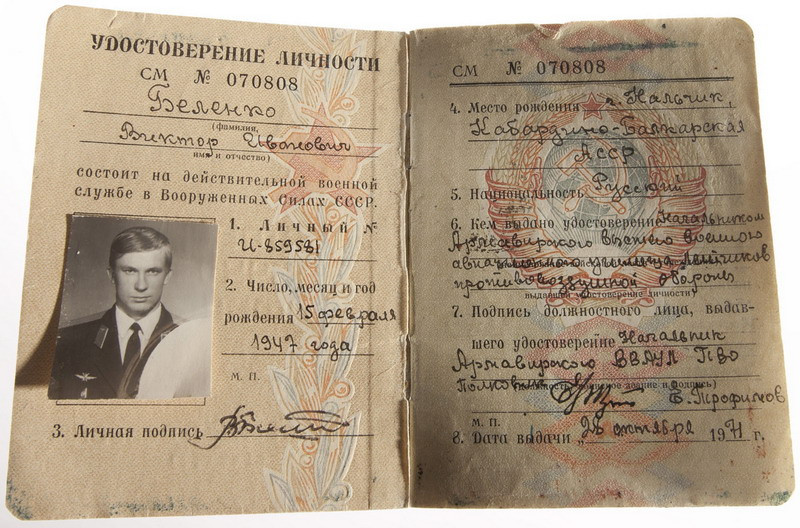 УДОСТОВЕРЕНИЕ ЛИЧНОСТИ
СМ № 070808
Беленко
(фамилия,
Виктор Иванович
имя и отчество)
состоит на действительной военной
службе в Вооруженных Силах СССР.
1. Личный №
И-859531
2. Число, месяц и год
рождения 15 февраля
1947 года
М. П.
3. Личная подпись
СМ № 070808
4. Место рождения г. Нальчик,
Кабардино-Балкарская
АССР
5. Национальность Русский
6. Кем выдано удостоверение Начальником
Армавирского высшего военного
авиационного училища летчиков
противовоздушной обороны
выдавшей удостоверение личности)
7. Подпись должностного лица, выдав-
шего удостоверение Начальник
Армавирского ВВАУЛ ПВО
Полковник звание и подпись)
Б. Трофимов
М. П.
8. Дата выдачи „26 октября 1971 г.